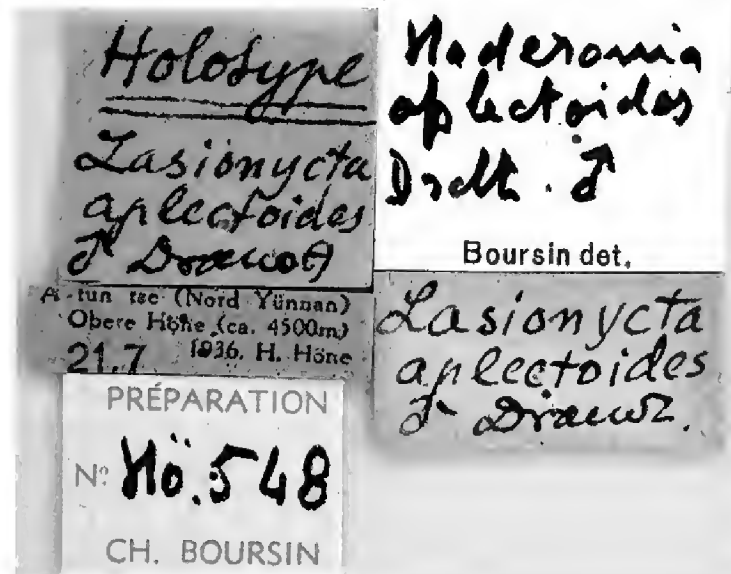 Holotype
Lasionycta
aplectoides
♂ Draudt
A-tun tse (Nord Yünnan)
Obere Höhe (ca. 4500m)
21.7 1936. H. Höne
PRÉPARATION
No. Hö.548
CH. BOURSIN
Haderonia
aplectoides
Drdt. ♂
Boursin det.
Lasionycta
aplectoides
♂ Draudt.